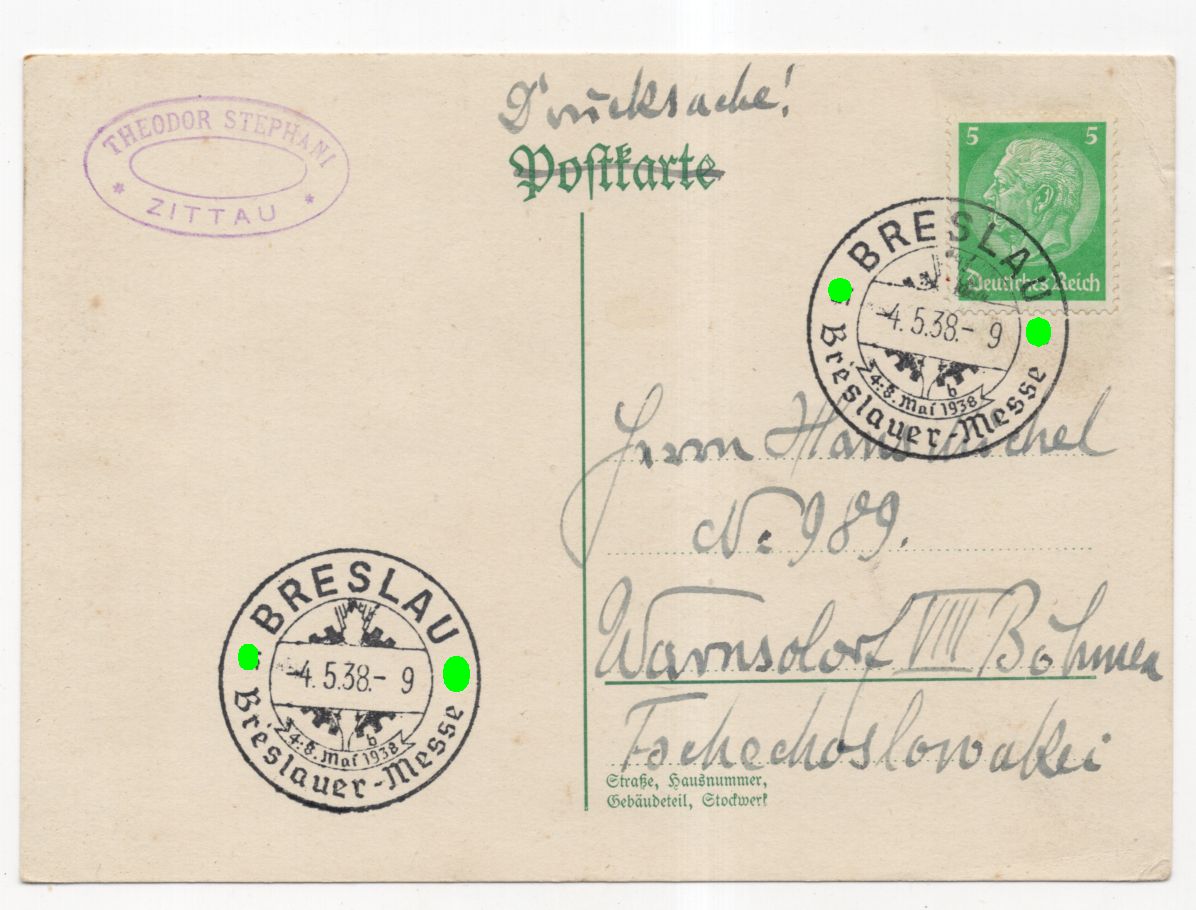 THEODOR STEPHANI
* ZITTAU *
Drucksache!
Postkarte
5 5
Deutsches Reich
BRESLAU
-4.5.38.- 9
b
4.-8. Mai 1938
Breslauer-Messe
Herrn Hans Michel
N: 989.
Warnsdorf VIII Böhmen
Tschechoslowakei
Straße, Hausnummer,
Gebäudeteil, Stockwerk
BRESLAU
-4.5.38.- 9
b
4.-8. Mai 1938
Breslauer-Messe